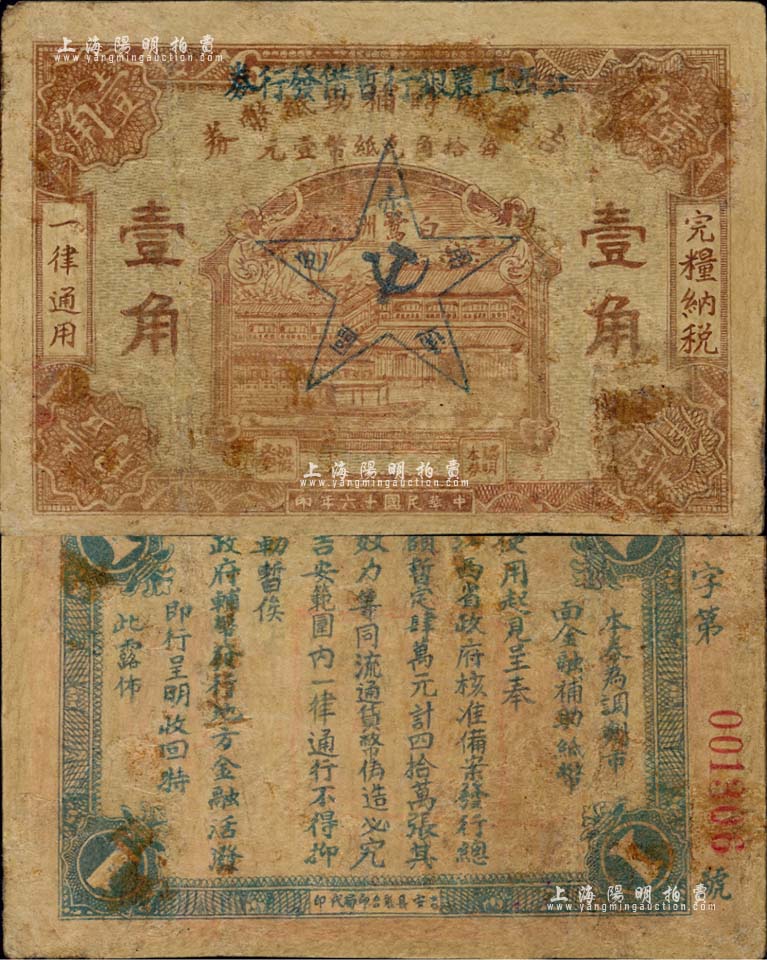 上海陽明拍賣
www.yangmingauction.com
江西工農銀行暫借發行券
每拾角兌紙幣壹元
壹角
壹角
壹角
壹角
完糧納税
一律通用
赤
白鷺洲
中華民國十六年印
上海陽明拍賣
www.yangmingauction.com
字第
001366
號
本券為調劑市
面金融補助紙幣
使用起見呈奉
江西省政府核准備案發行總
額暫定肆萬元計四拾萬張其
效力等同流通貨幣偽造必究
吉安範圍内一律通行不得抑
勒暫俟
政府輔幣發行地方金融活潑
即行呈明收回特
此露佈
局代印
上海陽明拍賣
www.yangmingauction.com